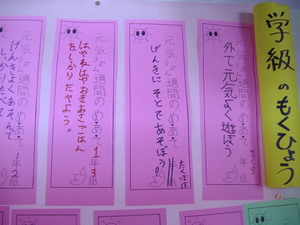 学級のもくひょう
元気リズム週間のめあて
外で元気よく遊ぼう
さくら
元気リズム週間のめあて
げんきにそとであそぼう!
たんぽぽ
元気リズム週間のめあて
1年3
はやねはやおきあさごはん
をしっかりたべよう。
元気リズム週間のめあて
1年2
げんきよくあそんで